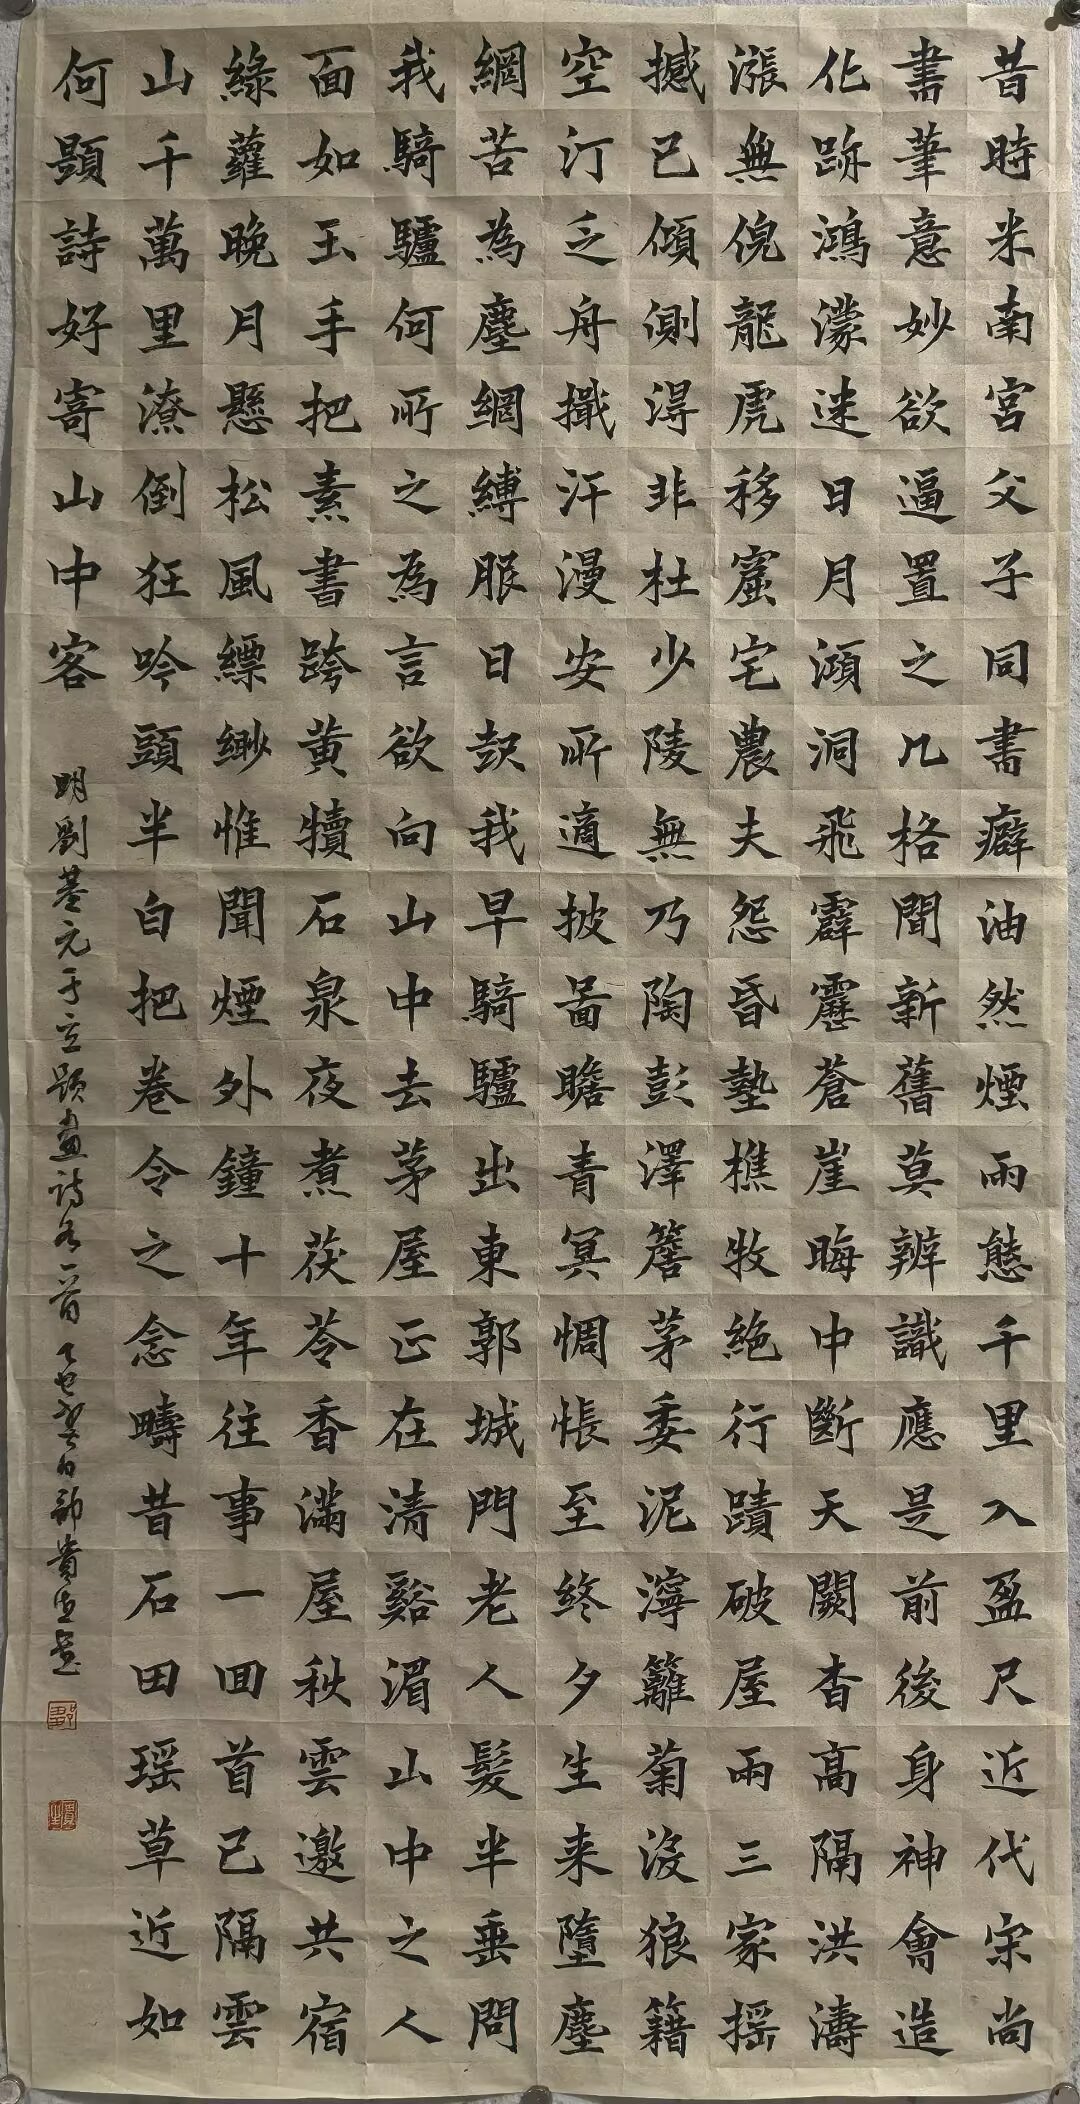 昔時米南宮父子同書癖油然煙雨態千里入盈尺近代宋尚
書筆意妙欲逼置之几格間新舊莫辨識應是前後身神會造
化跡鴻濛迷日月澒洞飛霹靂蒼崖晦中斷天闕杳高隔洪濤
漲無倪龍虎移窟宅農夫怨昏墊樵牧絶行蹟破屋兩三家摇
撼已傾側淂非杜少陵無乃陶彭澤簷茅委泥濘籬菊沒狼籍
空汀乏舟撶汗漫安所適披啚瞻青冥惆悵至終夕生来墮塵
網苦為塵網縛眼日起我早騎驢出東郭城門老人髮半垂問
我騎驢何所之為言欲向山中去茅屋正在清谿湄山中之人
面如玉手把素書跨黃犢石泉夜煮茯苓香滿屋秋雲邀共宿
綠蘿晚月懸松風縹緲惟聞煙外鐘十年往事一回首已隔雲
山千萬里潦倒狂吟頭半白把卷令之念疇昔石田瑶草近如
何顥詩好寄山中客
明劉基元于立題畫詩各一首乙巳